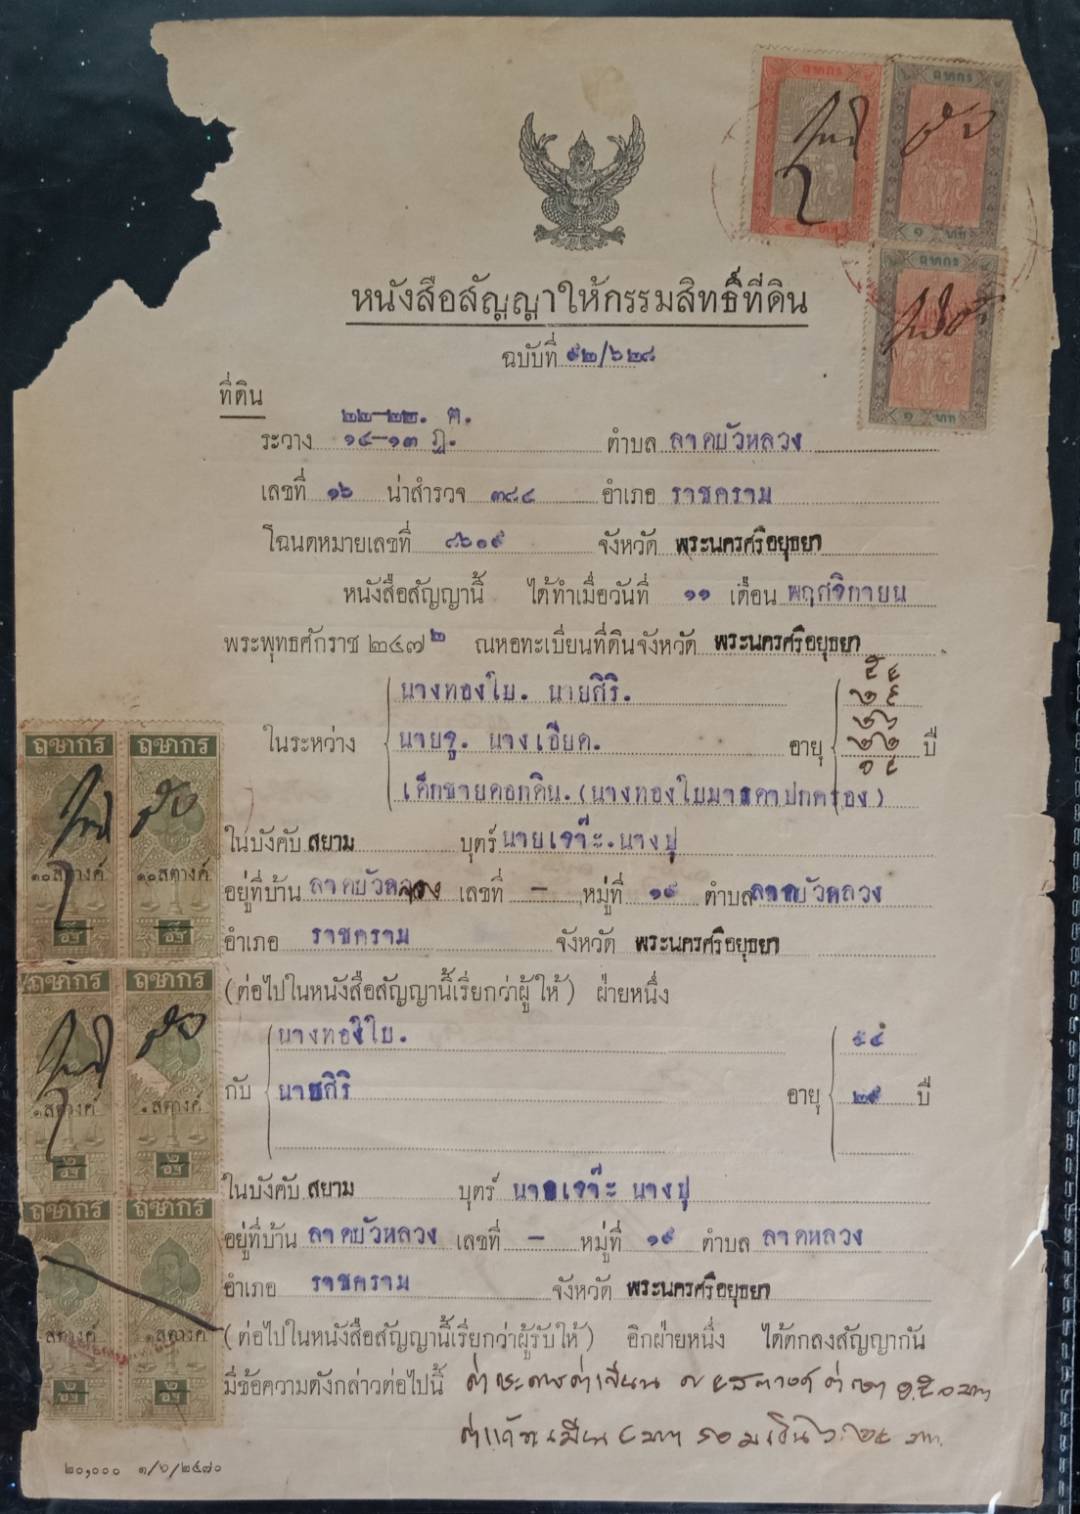 หนังสือสัญญาให้กรรมสิทธิ์ที่ดิน
ฉบับที่ ๙๒/๖๒๘
ที่ดิน
๒๒-๒๒. ต.
ระวาง ๑๔-๑๓ ฏ. ตำบล ลาดบัวหลวง
เลขที่ ๑๖ น่าสำรวจ ๓๘๔ อำเภอ ราชคราม
โฉนดหมายเลขที่ ๘๖๑๙ จังหวัด พระนครศรีอยุธยา
หนังสือสัญญานี้ ได้ทำเมื่อวันที่ ๑๑ เดือน พฤศจิกายน
พระพุทธศักราช ๒๔๗๒ ณหอทะเบียนที่ดินจังหวัด พระนครศรีอยุธยา
นางทองใบ. นายศิริ.
ในระหว่าง นายจู. นางเอียด. อายุ ปี
เด็กชายดอกดิน.(นางทองใบมารดาปกครอง)
ในบังคับ สยาม บุตร์ นายเจ๊ะ.นางปุ
อยู่ที่บ้าน ลาดบัวหลวง เลขที่ - หมู่ที่ ๑๙ ตำบล ลาดบัวหลวง
อำเภอ ราชคราม จังหวัด พระนครศรีอยุธยา
(ต่อไปในหนังสือสัญญานี้เรียกว่าผู้ให้) ฝ่ายหนึ่ง
นางทองใบ. ๕๔
กับ นายศิริ อายุ ๒๙ ปี
ในบังคับ สยาม บุตร์ นายเจ๊ะ นางปุ
อยู่ที่บ้าน ลาดบัวหลวง เลขที่ - หมู่ที่ ๑๙ ตำบล ลาดหลวง
อำเภอ ราชคราม จังหวัด พระนครศรีอยุธยา
(ต่อไปในหนังสือสัญญานี้เรียกว่าผู้รับให้) อีกฝ่ายหนึ่ง ได้ตกลงสัญญากัน
มีข้อความดังกล่าวต่อไปนี้
๒๐,๐๐๐ ๑/๖/๒๔๗๐
อากร
อากร
๑ บาท
อากร
๑ บาท
ฤชากร ฤชากร
๑๐สตางค์ ๑๐สตางค์
ฤชากร ฤชากร
สตางค์ สตางค์
ฤชากร ฤชากร
สตางค์ สตางค์